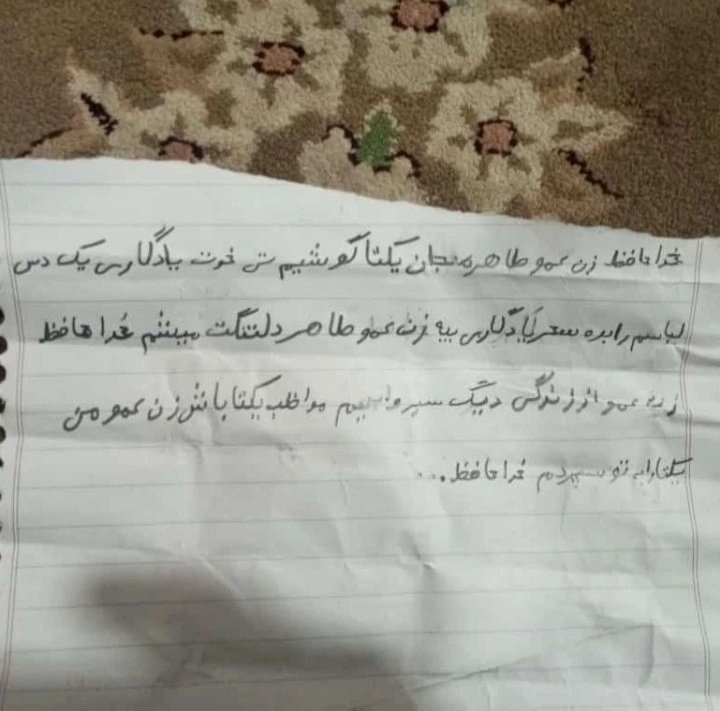 خدا حافظ زن عمو طاهره جان یکتا گوشیم تی خوت یادگاری یک دس
لباسم را بده سحر یادگاری بیه زن عمو طاهر دلتنگت میشم خدا حافظ
زن عمو از زندگی دیگ سیر مواظب یکتا باش زن عمو من
یکتا را به تو سپردم خدا حافظ...